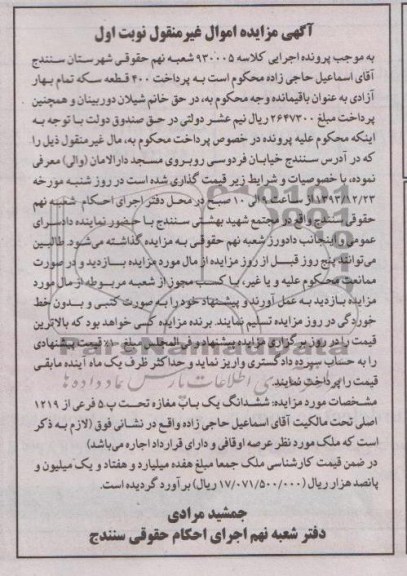 آگهی مزایده اموال غیرمنقول نوبت اول
به موجب پرونده اجرایی کلاسه ۹۳۰۰۰۵ شعبه نهم حقوقی شهرستان سنندج
آقای اسماعیل حاجی زاده محکوم است به پرداخت ۴۰۰ قطعه سکه تمام بهار
آزادی به عنوان باقیمانده وجه محکوم به، در حق خانم شیلان دوربینان و همچنین
پرداخت مبلغ ۲۶۴۷۳۰۰ ریال نیم عشر دولتی در حق صندوق دولت با توجه به
اینکه محکوم علیه پرونده در خصوص پرداخت محکوم به، مال غیر منقول ذیل را
که در آدرس سنندج خیابان فردوسی روبروی مسجد دارالامان (والی) معرفی
نموده، با خصوصیات و شرایط زیر قیمت گذاری شده است در روز شنبه مورخه
۱۳۹۳/۱۲/۲۳ از ساعت ۹ الی ۱۰ صبح در محل دفتر اجرای احکام شعبه نهم
حقوقی سنندج واقع در مجتمع شهید بهشتی سنندج با حضور نماینده دادسرای
عمومی و اینجانب دادورز شعبه نهم حقوقی به مزایده گذاشته می‌شود. طالبین
می‌توانند پنج روز قبل از روز مزایده از مال مورد مزایده بازدید و در صورت
ممانعت محکوم علیه و یا غیر، با کسب مجوز از شعبه مربوطه از مال مورد
مزایده بازدید به عمل آورند و پیشنهاد خود را به صورت کتبی و بدون خط
خوردگی در روز مزایده تسلیم نمایند. برنده مزایده کسی خواهد بود که بالاترین
قیمت را در روز برگزاری مزایده پیشنهاد و فی المجلس مبلغ ۱۰٪ قیمت پیشنهادی
را به حساب سپرده دادگستری واریز نماید و حداکثر ظرف یک ماه آینده مابقی
قیمت را پرداخت نمایند.
مشخصات مورد مزایده: ششدانگ یک باب مغازه تحت پ ۵ فرعی از ۱۲۱۹
اصلی تحت مالکیت آقای اسماعیل حاجی زاده واقع در نشانی فوق (لازم به ذکر
است که ملک مورد نظر عرصه اوقافی و دارای قرارداد اجاره می‌باشد)
در ضمن قیمت کارشناسی ملک جمعا مبلغ هفده میلیارد و هفتاد و یک میلیون و
پانصد هزار ریال (۱۷/۰۷۱/۵۰۰/۰۰۰ ریال) برآورد گردیده است.
جمشید مرادی
دفتر شعبه نهم اجرای احکام حقوقی سنندج
ParsNamadData